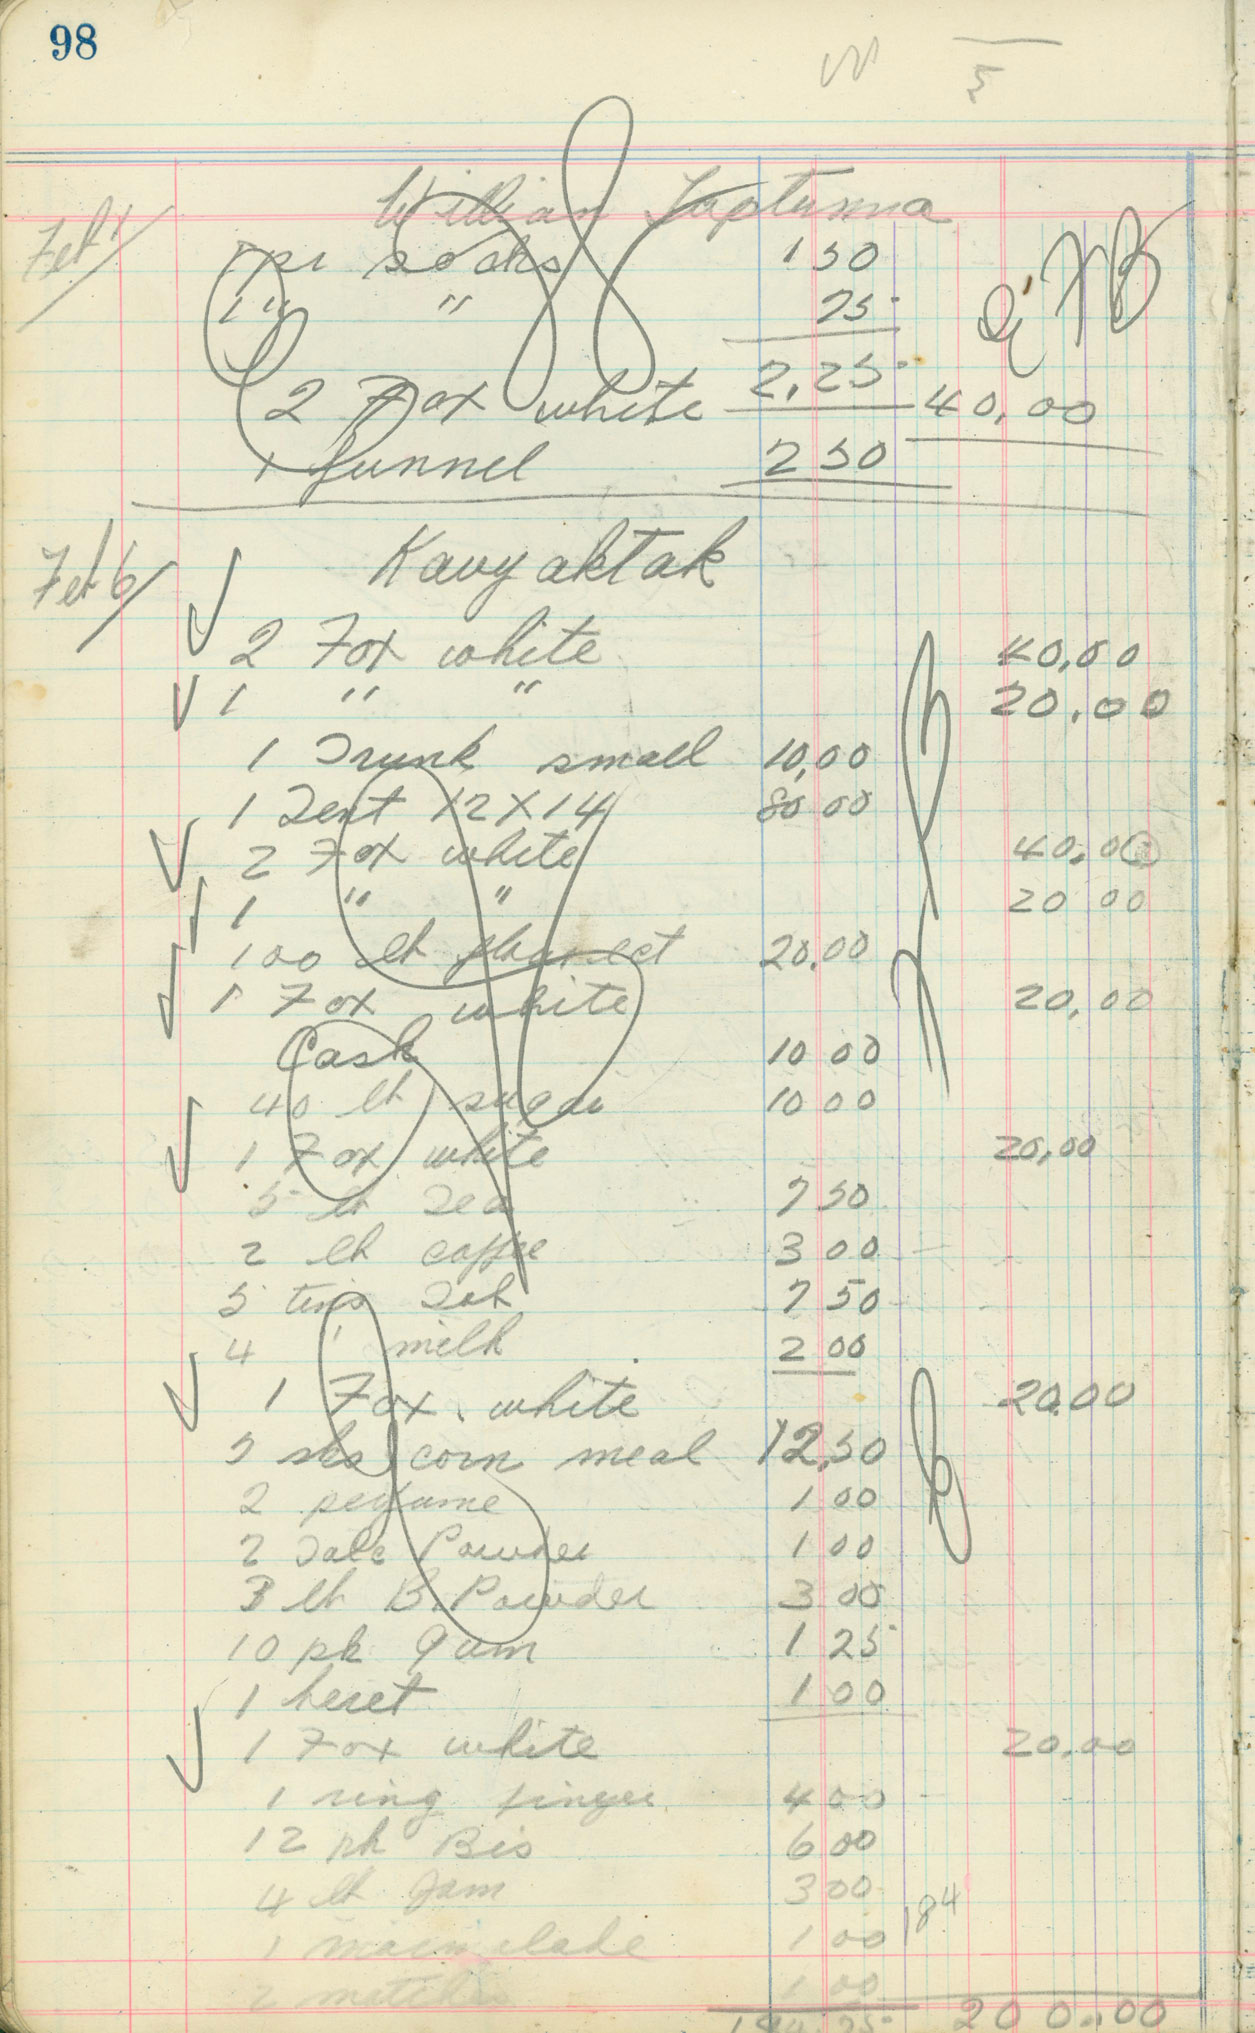 98
5
William Taptunna
Feb 1/
1 pr socks 1 50
1 " " 75
2,25
2 Fox white 40,00
1 funnel 2 50
Feb 6/ Kavyaktak
2 Fox white 40,00
1 " " 20,00
1 Trunk small 10,00
1 Tent 12X14 80 00
2 Fox white 40,00
1 " " 20 00
100 lb 20,00
1 Fox white 20,00
Cash 10 00
40 lb sugar 10 00
1 Fox white 20,00
5 lb Tea 7 50
2 lb coffee 3 00
5 tins Tob 7 50
4 ' milk 2 00
1 Fox white 20.00
5 sks corn meal 12,50
2 perfume 1 00
2 Talc Powder 1 00
3 lb B. Powder 3 00
10 pk gum 1 25
1 beret 1 00
1 Fox white 20.00
1 ring finger 4 00
12 pk Bis 6 00
4 lb Jam 3 00
184
1 marmalade 1 00
2 matches 1 00
200.00